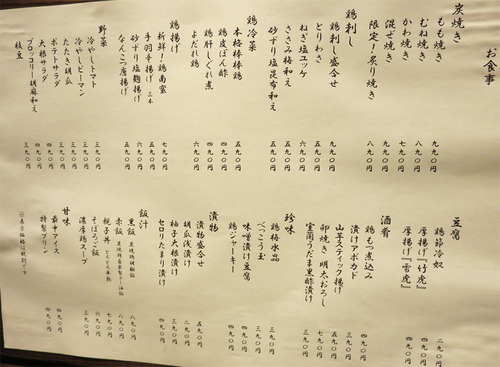 お食事
炭焼き
もも焼き 九九〇円
むね焼き 八九〇円
かわ焼き 七九〇円
混ぜ焼き 九九〇円
限定！炙り焼き 八九〇円
鶏刺し
鶏刺し盛合せ
とりわさ 五九〇円
ねぎ塩ユッケ 六九〇円
ささみ梅和え 五九〇円
砂ずり塩昆布和え 五九〇円
鶏冷菜
本格棒棒鶏 五九〇円
鶏皮ぽん酢 四九〇円
鶏肝しぐれ煮 四九〇円
よだれ鶏 六九〇円
鶏揚げ
新鮮！鶏南蛮 七九〇円
手羽辛揚げ 三本 五九〇円
砂ずり塩麹揚げ 六九〇円
なんこつ唐揚げ 五九〇円
野菜
冷やしトマト 三九〇円
冷やしピーマン 三九〇円
たたき胡瓜 三九〇円
ポテトサラダ 四九〇円
大根サラダ 四九〇円
ブロッコリー胡麻和え 四九〇円
枝豆 三九〇円
豆腐
鶏節冷奴 二九〇円
厚揚げ『竹虎』 四九〇円
厚揚げ『雪虎』 四九〇円
酒肴
鶏もつ煮込み 四九〇円
漬けアボカド 三九〇円
山芋スティック揚げ 五九〇円
卵焼き 明太おろし 七九〇円
室蘭うずま黒酢漬け 三九〇円
珍味
鶏梅水晶 三九〇円
べっこう玉 三九〇円
味噌漬け豆腐 四九〇円
鶏ジャーキー 四九〇円
漬物
漬物盛合せ 五九〇円
胡瓜浅漬け 二九〇円
柚子大根漬け 四九〇円
セロリたまり漬け 四九〇円
飯汁
黒飯 八九〇円
赤飯 八九〇円
親子丼 七九〇円
そぼろご飯 六九〇円
濃厚鶏スープ 三九〇円
甘味
最中アイス 四九〇円
特製プリン 四九〇円
※表示価格は税別です